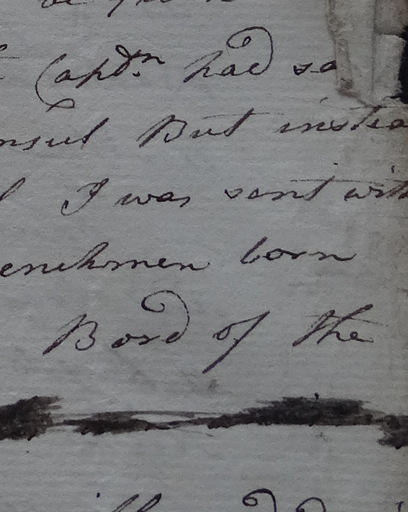 Capt.n had sa
nsul But instea
I was sent with
enchmen born
Bord of the